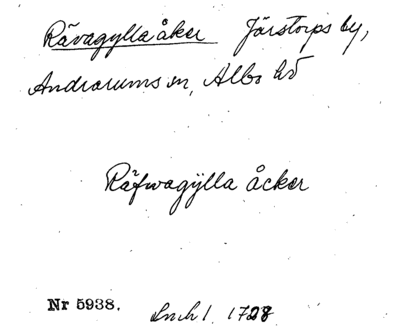 Rävagylla åker Järstorps by,
Andrarums sn, Albo hd
Räfwagÿlla åcker
Nr 5938. Lmh 1 1728